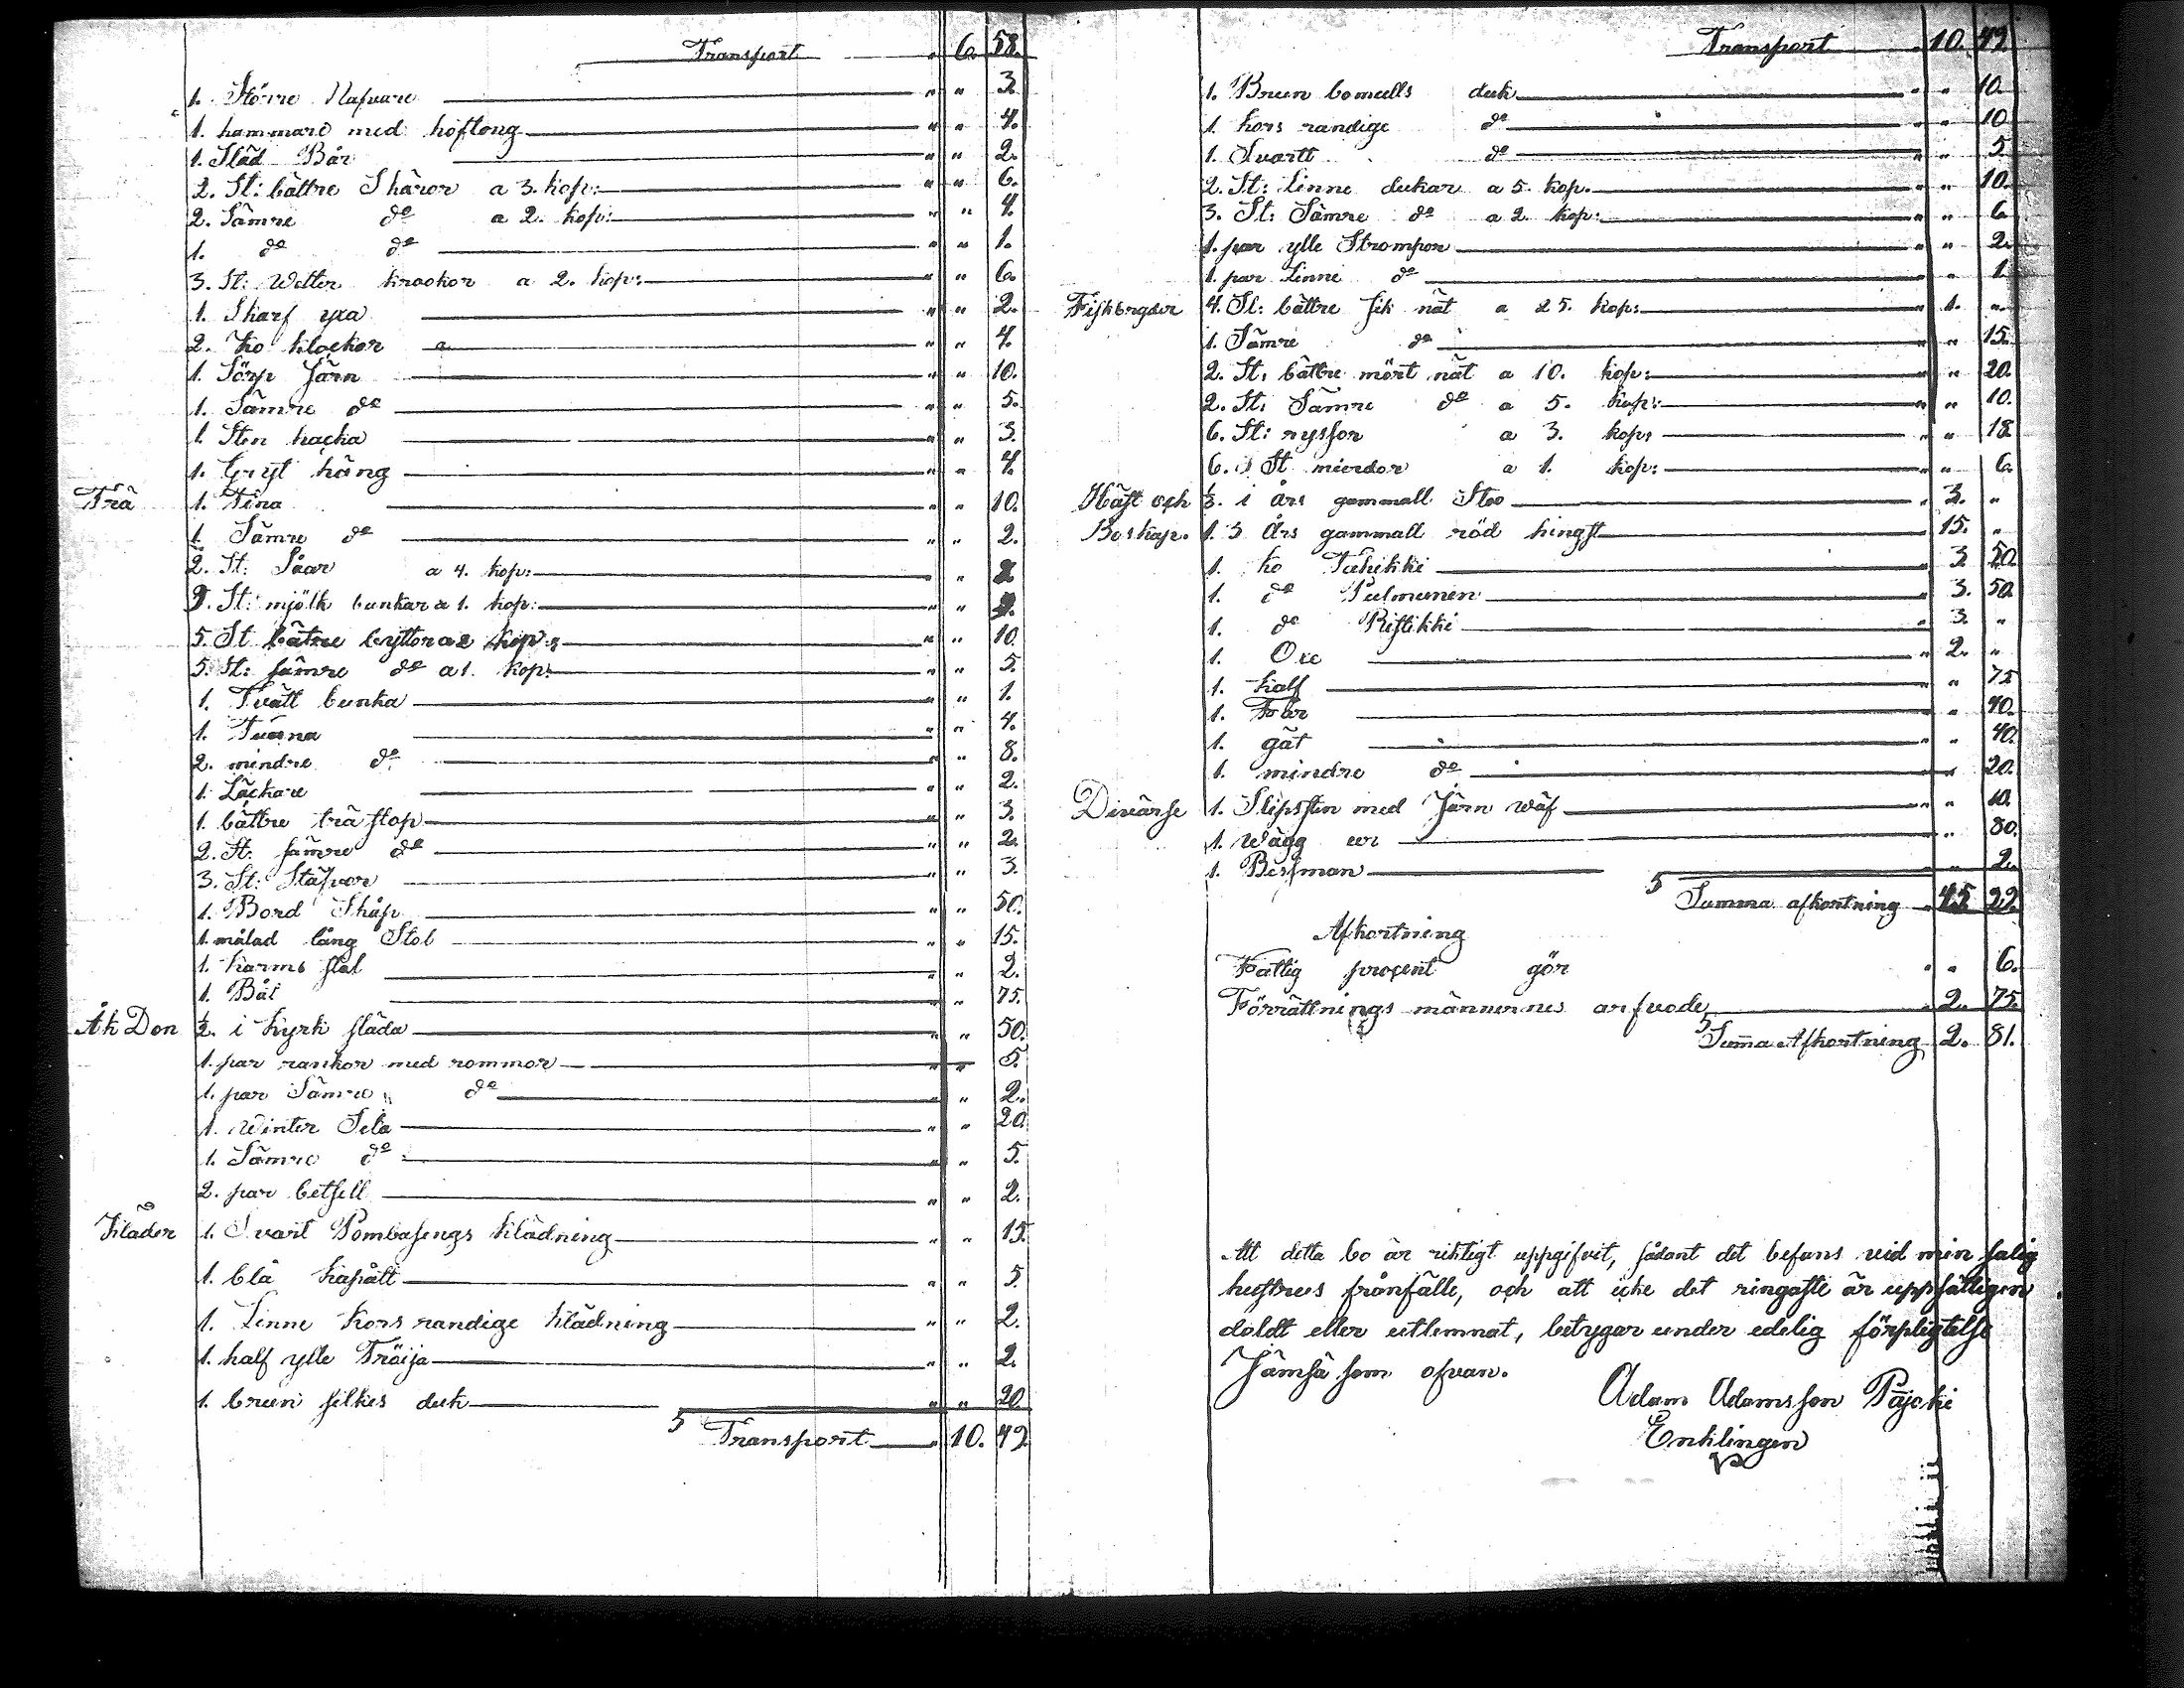 Transport " 6. 58.
1. Större Nafvare " " 3.
1. hammare med hoftong " " 4.
1. Släd Bår " " 2.
2. St: bättre Skäror a 3. kop: " " 6.
2. Sämre do a 2. kop: " " 4.
1. do do " " 1.
3. St: Wetter krockor a 2. kop: " " 6.
1. Skarf yxa " " 2.
2. ko klockor a " " 4.
1. Sörp Järn " " 10.
1. Sämre do " " 5.
1. Sten hacka " " 3.
1. Gryt häng " " 4.
Trä 1. Tina " " 10.
1. Sämre do " " 2.
2. St: Såar a 4. kop: " "
St: mjölk bunkar a 1. kop: " "
5. St bätre byttor a 2 kop: " " 10.
5. St: sämre do a 1. kop: " " 5.
1. Tvätt bunka " " 1.
1. Tunna " " 4.
2. mindre do " " 8.
1. Läckare " " 2.
1. bättre trä stop " " 3.
2. St: sämre do " " 2.
3. St: Stäfvor " " 3.
1. Bord Skåp " " 50.
1. målad lång Stol " " 15.
1. karms stol " " 2.
1. Båt " " 75.
Åk Don ½. i kyrk släda " " 50.
1. par rankor med rommor " " 5.
1. par Sämre do " " 2.
1. Winter Sela " " 20.
1. Sämre do " " 5.
2. par betsell " " 2.
Kläder 1. Svart Bombasengs klädning " " 15.
1. blå kapått " " 5.
1. Linne kors randige klädning " " 2.
1. half ylle Tröija " " 2.
1. brun silkes duk " " 20.
5 Transport " 10. 42.
Transport " 10. 42.
1. Brun bomulls duk " " 10.
1. kors randige do " " 10
1. Svartt do " " 5.
2. St: Linne dukar a 5. kop. " " 10.
3. St: Sämre do a 2. kop: " " 6.
1. par ylle Strompor " " 2.
1. par Linne do " " 1.
Fiskbrgder 4. St: bättre sik nät a 25. kop: " 1. "
1. Sämre do " " 15.
2. St: bättre mört nät a 10. kop: " " 20.
2. St: Sämre do a 5. kop: " " 10.
6. St: ryssjor a 3. kop: " " 18
6. St mierdor a 1. kop: " " 6.
Häst och ½. i års gammall Sto " 3. "
Boskap. 1. 3 Års gammall röd hingst " 15. "
1. ko Tahikki " 3 50.
1. do Pulmunen " 3. 50.
1. do Ristikki " 3. "
1. Oxe " 2. "
1. kalf " " 75
1. Får " " 40.
1. gät " " 40.
1. mindre do " " 20.
Diverse 1. Slipsten med Järn wäf " " 10.
1. Wägg ur " " 80.
1. Besman " " 2.
5 Summa afkortning " 45. 22.
Afkortning
Fattig proçent gör " " 6.
Förrättnings männernes arfvode " 2. 75.
5 Sum̃a Afkortning 2. 81.
Att detta bo är riktigt uppgifvit, sådant det befans vid min salig
hustrus frånfälle, och att icke det ringaste är uppsåtligen
doldt eller utlemnat, betygar under edelig förpligtelse
Jämsä som ofvan.
Adam Adamsson Päjcki
Enklingen